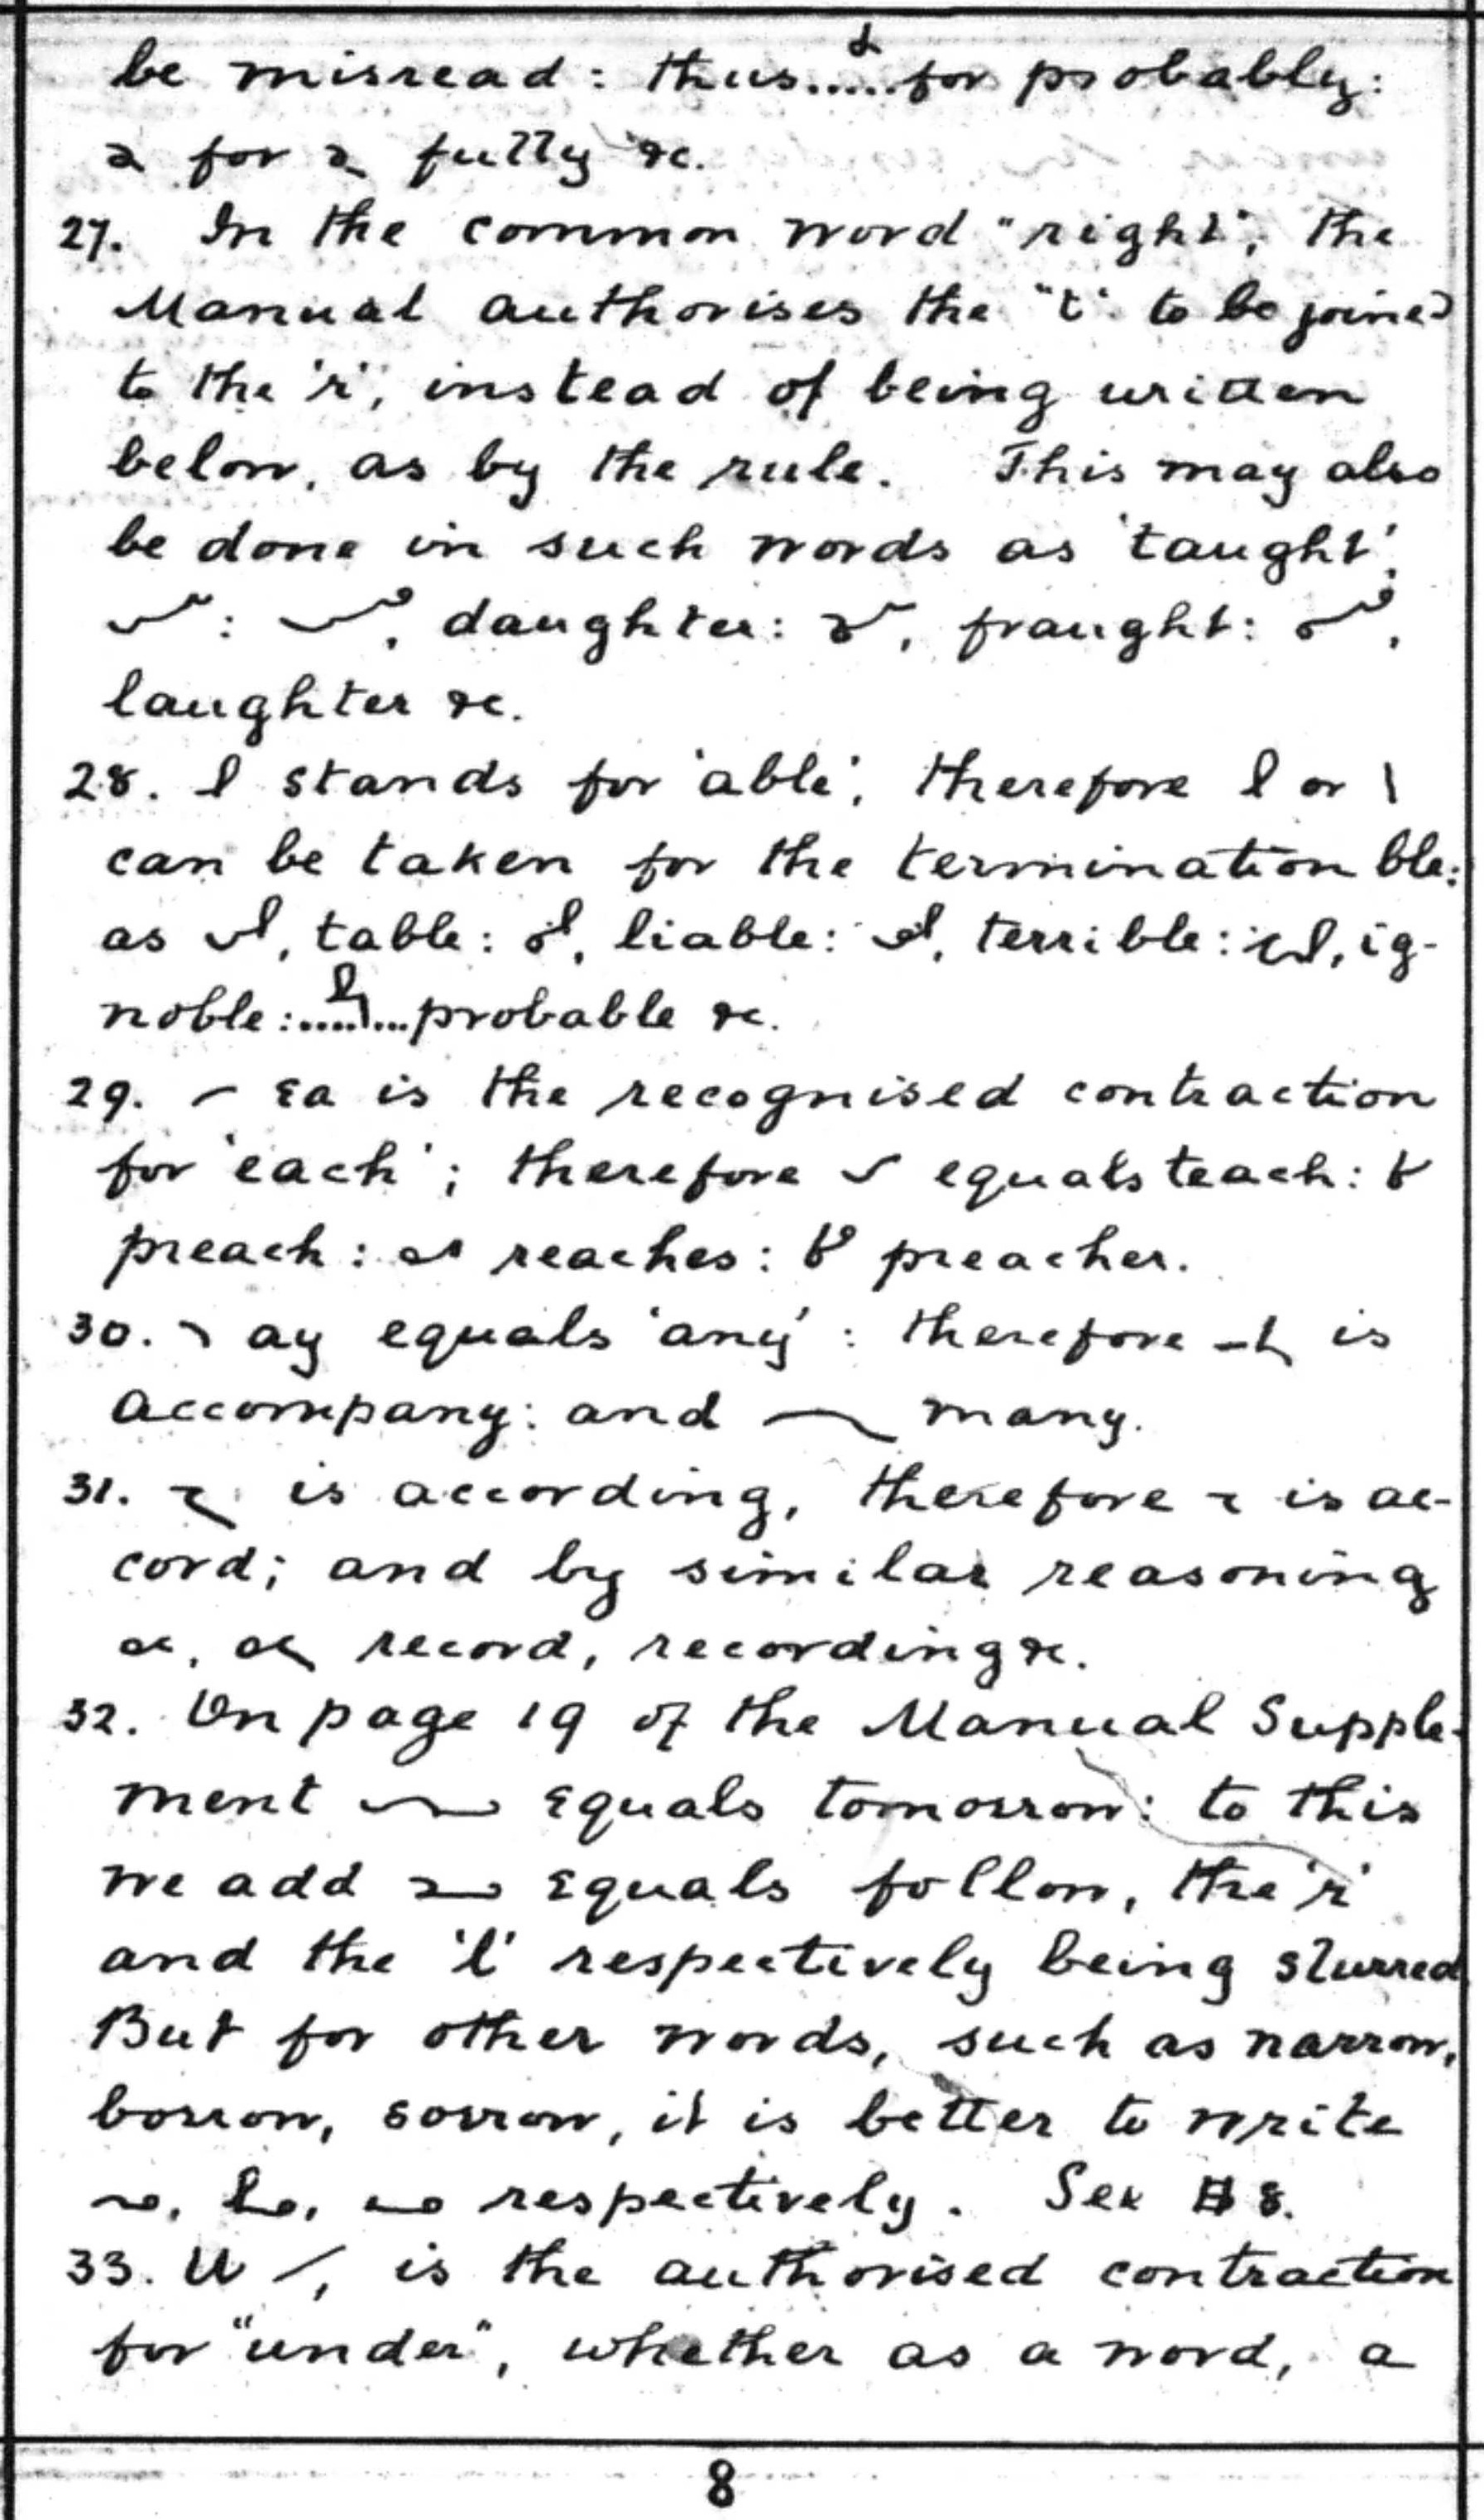 be misread: thus..... for probably:
for fully &c.
27. In the common word "right", the
Manual authorises the "t" to be joined
to the 'r', instead of being written
below, as by the rule. This may also
be done in such words as 'taught'.
: , daughter: , fraught: ,
laughter &c.
28. stands for 'able', therefore or
can be taken for the termination ble:
as , table: , liable: , terrible: , ig-
noble:........probable &c.
29. Ea is the recognised contraction
for 'each'; therefore equals teach:
preach: reaches: preacher.
30. ay equals 'any': therefore is
accompany: and many.
31. is according, therefore is ac-
cord; and by similar reasoning
, record, recording &c.
32. On page 19 of the Manual Supple-
ment equals tomorrow: to this
we add equals follow, the 'r'
and the 'l' respectively being slurred
But for other words, such as narrow,
borrow, sorrow, it is better to write
, , respectively. See 8.
33. U , is the authorised contraction
for "under", whether as a word, a
8